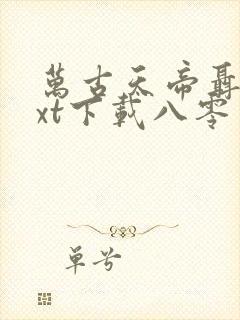 萬古天帝聶
xt下載八零
单号